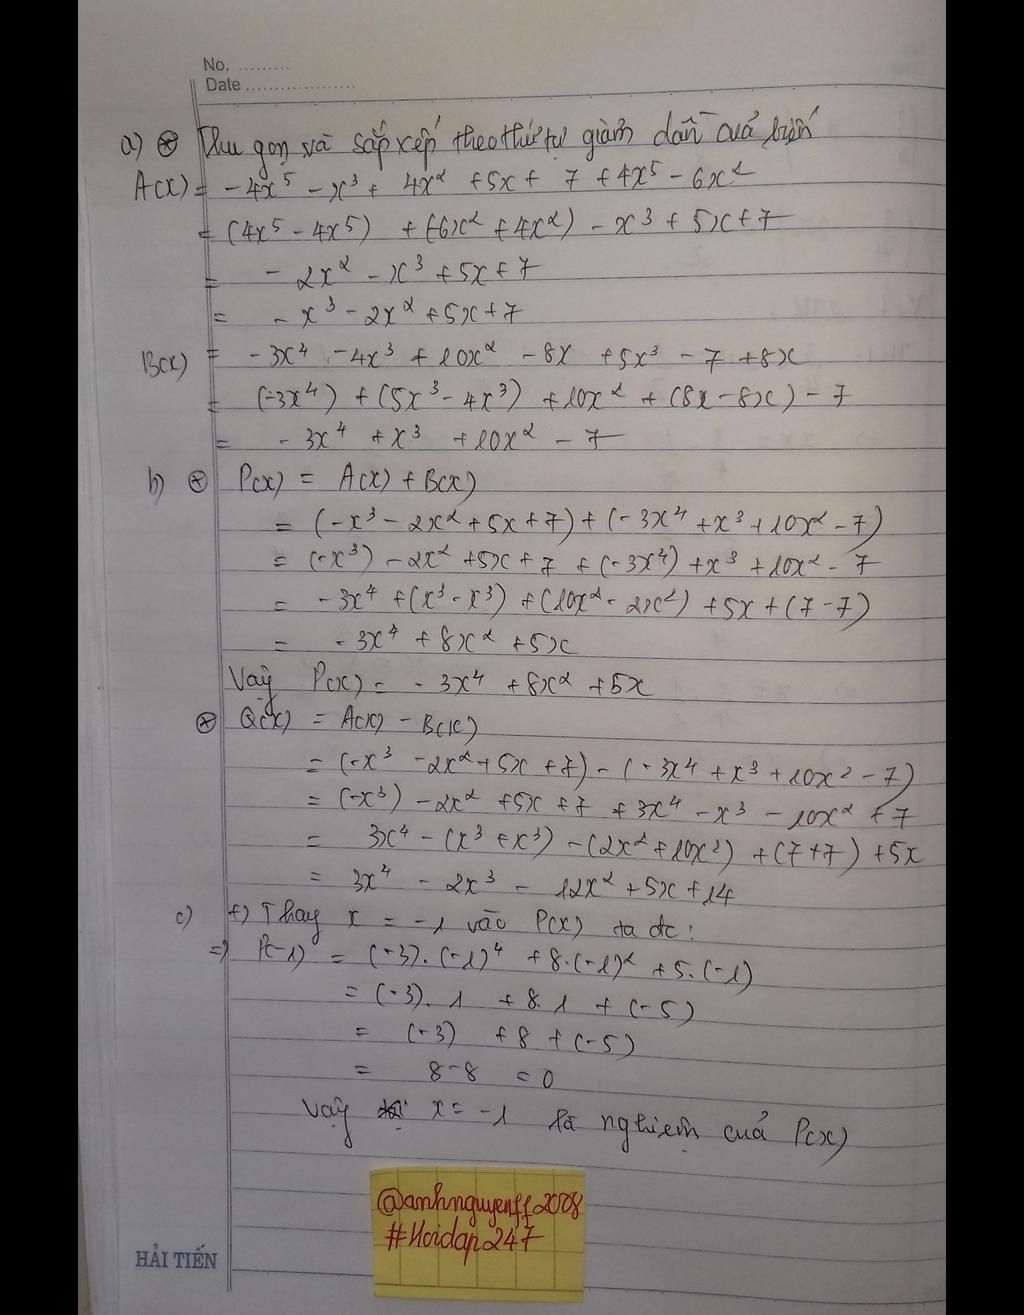 No. ..........
Date ...................
a) ⊛ Thu gọn và sắp xếp theo thứ tự giảm dần của biến
A(x) = -4x⁵ - x³ + 4x² + 5x + 7 + 4x⁵ - 6x²
= (4x⁵ - 4x⁵) + (-6x² + 4x²) - x³ + 5x + 7
= - 2x² - x³ + 5x + 7
= - x³ - 2x² + 5x + 7
B(x) = -3x⁴ - 4x³ + 10x² - 8x + 5x³ - 7 + 8x
= (-3x⁴) + (5x³ - 4x³) + 10x² + (8x - 8x) - 7
= - 3x⁴ + x³ + 10x² - 7
b) ⊛ P(x) = A(x) + B(x)
= (-x³ - 2x² + 5x + 7) + (-3x⁴ + x³ + 10x² - 7)
= (-x³) - 2x² + 5x + 7 + (-3x⁴) + x³ + 10x² - 7
= -3x⁴ + (x³ - x³) + (10x² - 2x²) + 5x + (7 - 7)
= - 3x⁴ + 8x² + 5x
Vậy P(x) = - 3x⁴ + 8x² + 5x
⊛ Q(x) = A(x) - B(x)
= (-x³ - 2x² + 5x + 7) - (-3x⁴ + x³ + 10x² - 7)
= (-x³) - 2x² + 5x + 7 + 3x⁴ - x³ - 10x² + 7
= 3x⁴ - (x³ + x³) - (2x² + 10x²) + (7 + 7) + 5x
= 3x⁴ - 2x³ - 12x² + 5x + 14
c) +) Thay x = -1 vào P(x) ta đc:
=> P(-1) = (-3).(-1)⁴ + 8.(-1)² + 5.(-1)
= (-3). 1 + 8.1 + (-5)
= (-3) + 8 + (-5)
= 8-8 = 0
Vậy x = -1 là nghiệm của P(x)
@anhnguyenff2008
#Hoidap247
HẢI TIẾN